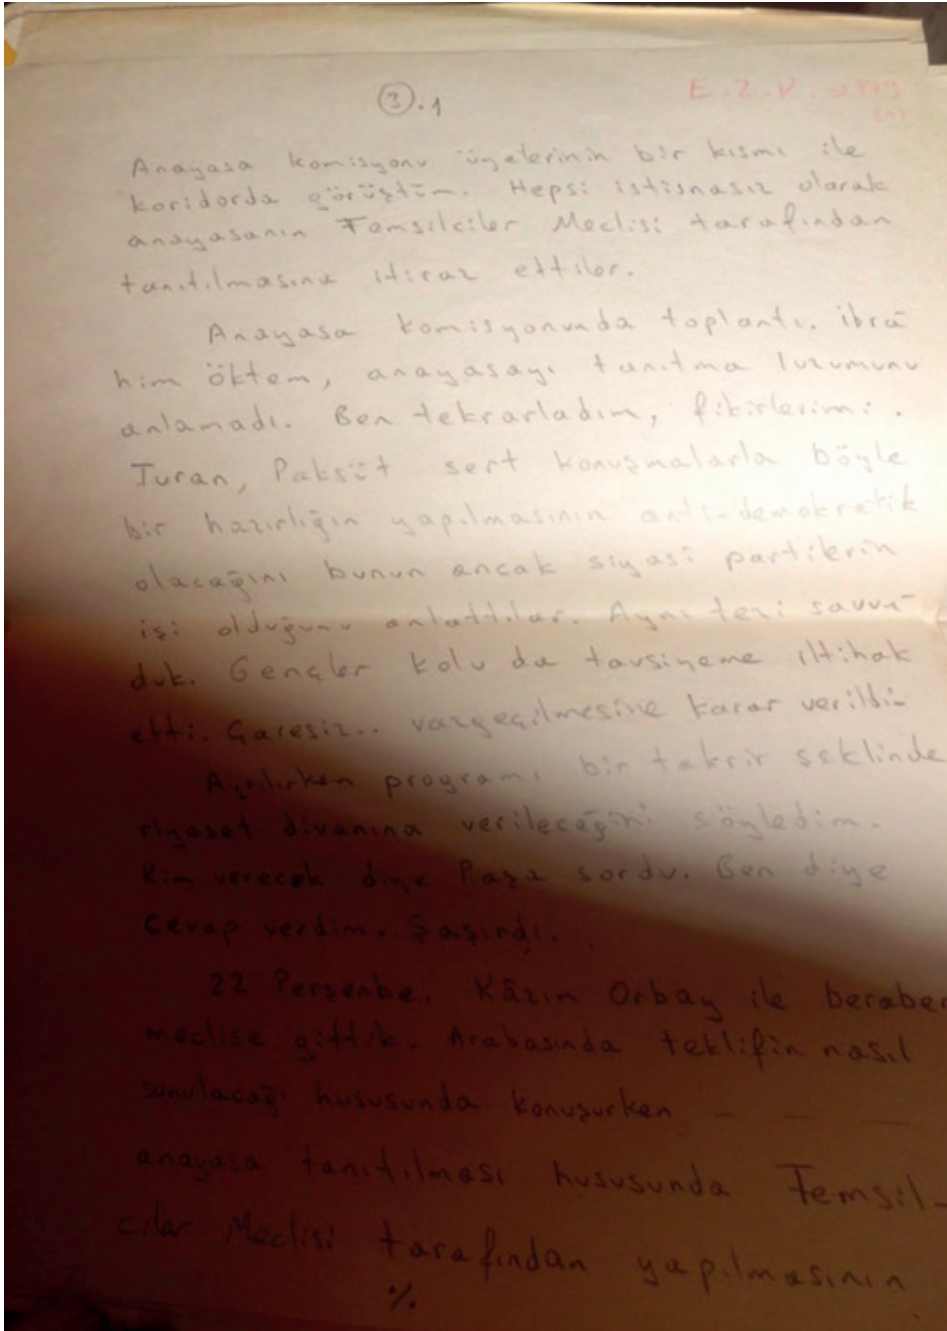 3.1
E.Z.K. → 179
Anayasa komisyonu üyelerinin bir kısmı ile
koridorda görüştüm. Hepsi istisnasız olarak
anayasanın Temsilciler Meclisi tarafından
tanıtılmasına itiraz ettiler.
Anayasa komisyonunda toplantı. İbra
him Öktem, anayasayı tanıtma luzumunu
anlamadı. Ben tekrarladım, fikirlerimi.
Turan, Paksüt sert konuşmalarla böyle
bir hazırlığın yapılmasının anti-demokratik
olacağını bunun ancak siyasi partilerin
işi olduğunu anlattılar. Aynı tezi savun-
duk. Gençler kolu da tavsiyeme iltihak
etti. Çaresiz.. vazgeçilmesine karar verildi-
Ayrılırken programı bir takrir şeklinde
riyaset divanına verileceğini söyledim.
Kim verecek diye Paşa sordu. Ben diye
cevap verdim. Şaşırdı.
22 Perşenbe. Kâzım Orbay ile beraber
meclise gittik. Arabasında teklifin nasıl
sunulacağı hususunda konuşurken — — —
anayasa tanıtılması hususunda Temsil-
ciler Meclisi tarafından yapılmasının
%.